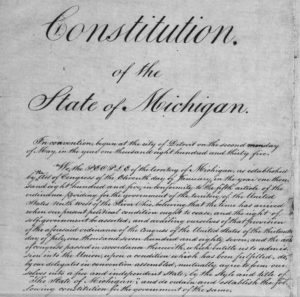 Constitution.
of the
State of Michigan.
In convention, begun at the city of Detroit on the second monday
of May, in the year one thousand eight hundred and thirty five:
We, the PEOPLE of the territory of Michigan, as established
by Act of Congress of the Eleventh day of January, in the year one thou-
sand eight hundred and five, in conformity to the fifth article of the
ordinance providing for the government of the territory of the United
States North West of the River Ohio, believing that the time has arrived
when our present political condition ought to cease, and the right of
self-government be asserted; and availing ourselves of that provision
of the aforesaid ordinance of the congress of the United States of the thirteenth
day of July, one thousand seven hundred and eighty seven, and the acts
of congress passed in accordance therewith, which entitle us to admis-
sion into the Union, upon a condition which has been fulfilled, do,
by our delegates in convention assembled, mutually agree to form our-
selves into a free and independent State, by the style and title of
"The State of Michigan," and do ordain and establish the fol-
lowing constitution for the government of the same.